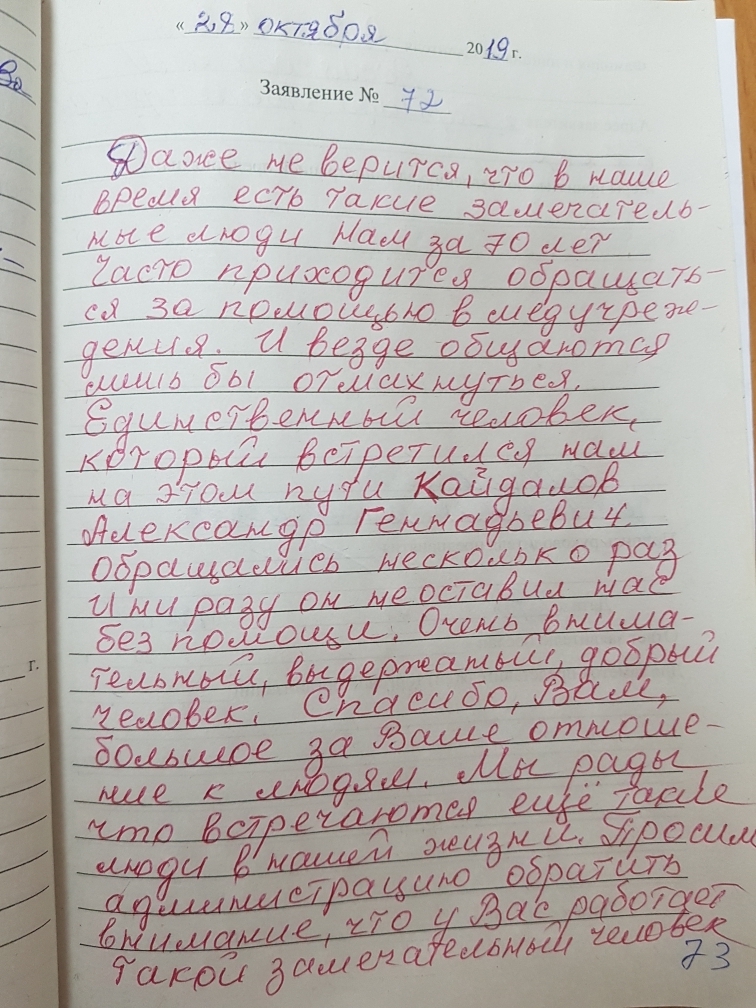 « 28 » октября 2019 г.
Заявление № 72
Даже не верится, что в наше
время есть такие замечатель-
ные люди Нам за 70 лет
Часто приходится обращать-
ся за помощью в медучреж-
дения. И везде общаются
лишь бы отмахнуться.
Единственный человек,
который встретился нам
на этом пути Кайдалов
Александр Геннадьевич
Обращались несколько раз
И ни разу он не оставил нас
без помощи. Очень внима-
тельный, выдержаный, добрый
г.
человек. Спасибо, Вам,
большое за Ваше отноше-
ние к людям. Мы рады
что встречаются ещё такие
люди в нашей жизни. Просим
администрацию обратить
внимание, что у Вас работает
такой замечательный человек
73